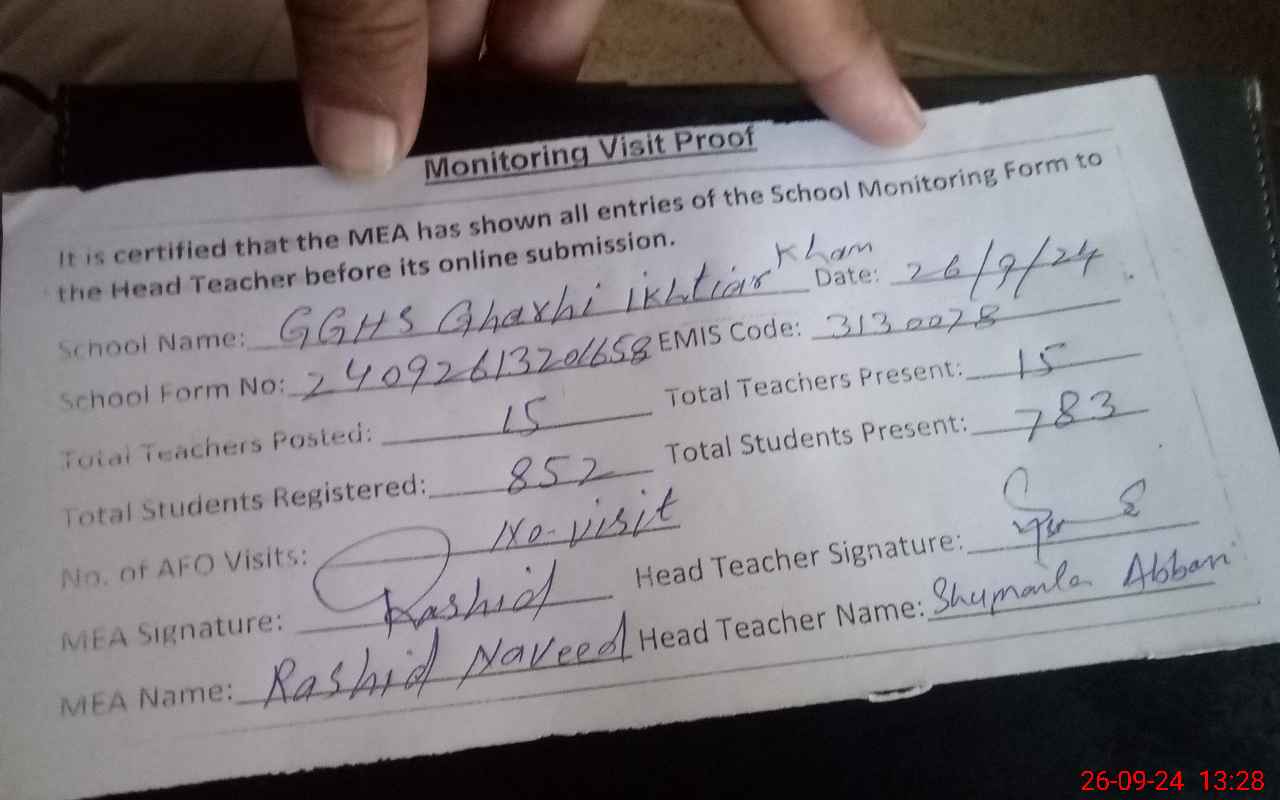 Monitoring Visit Proof
It is certified that the MEA has shown all entries of the School Monitoring Form to
the Head Teacher before its online submission.
School Name: GGHS Gharhi Ikhtiar Khan Date: 26/9/24
School Form No: 24092613201658 EMIS Code: 3130078
Total Teachers Posted: 15 Total Teachers Present: 15
Total Students Registered: 852 Total Students Present: 783
No. of AFO Visits: No-visit
MEA Signature: Rashid Head Teacher Signature:
MEA Name: Rashid Naveed Head Teacher Name: Shumaila Abbas
26-09-24 13:28